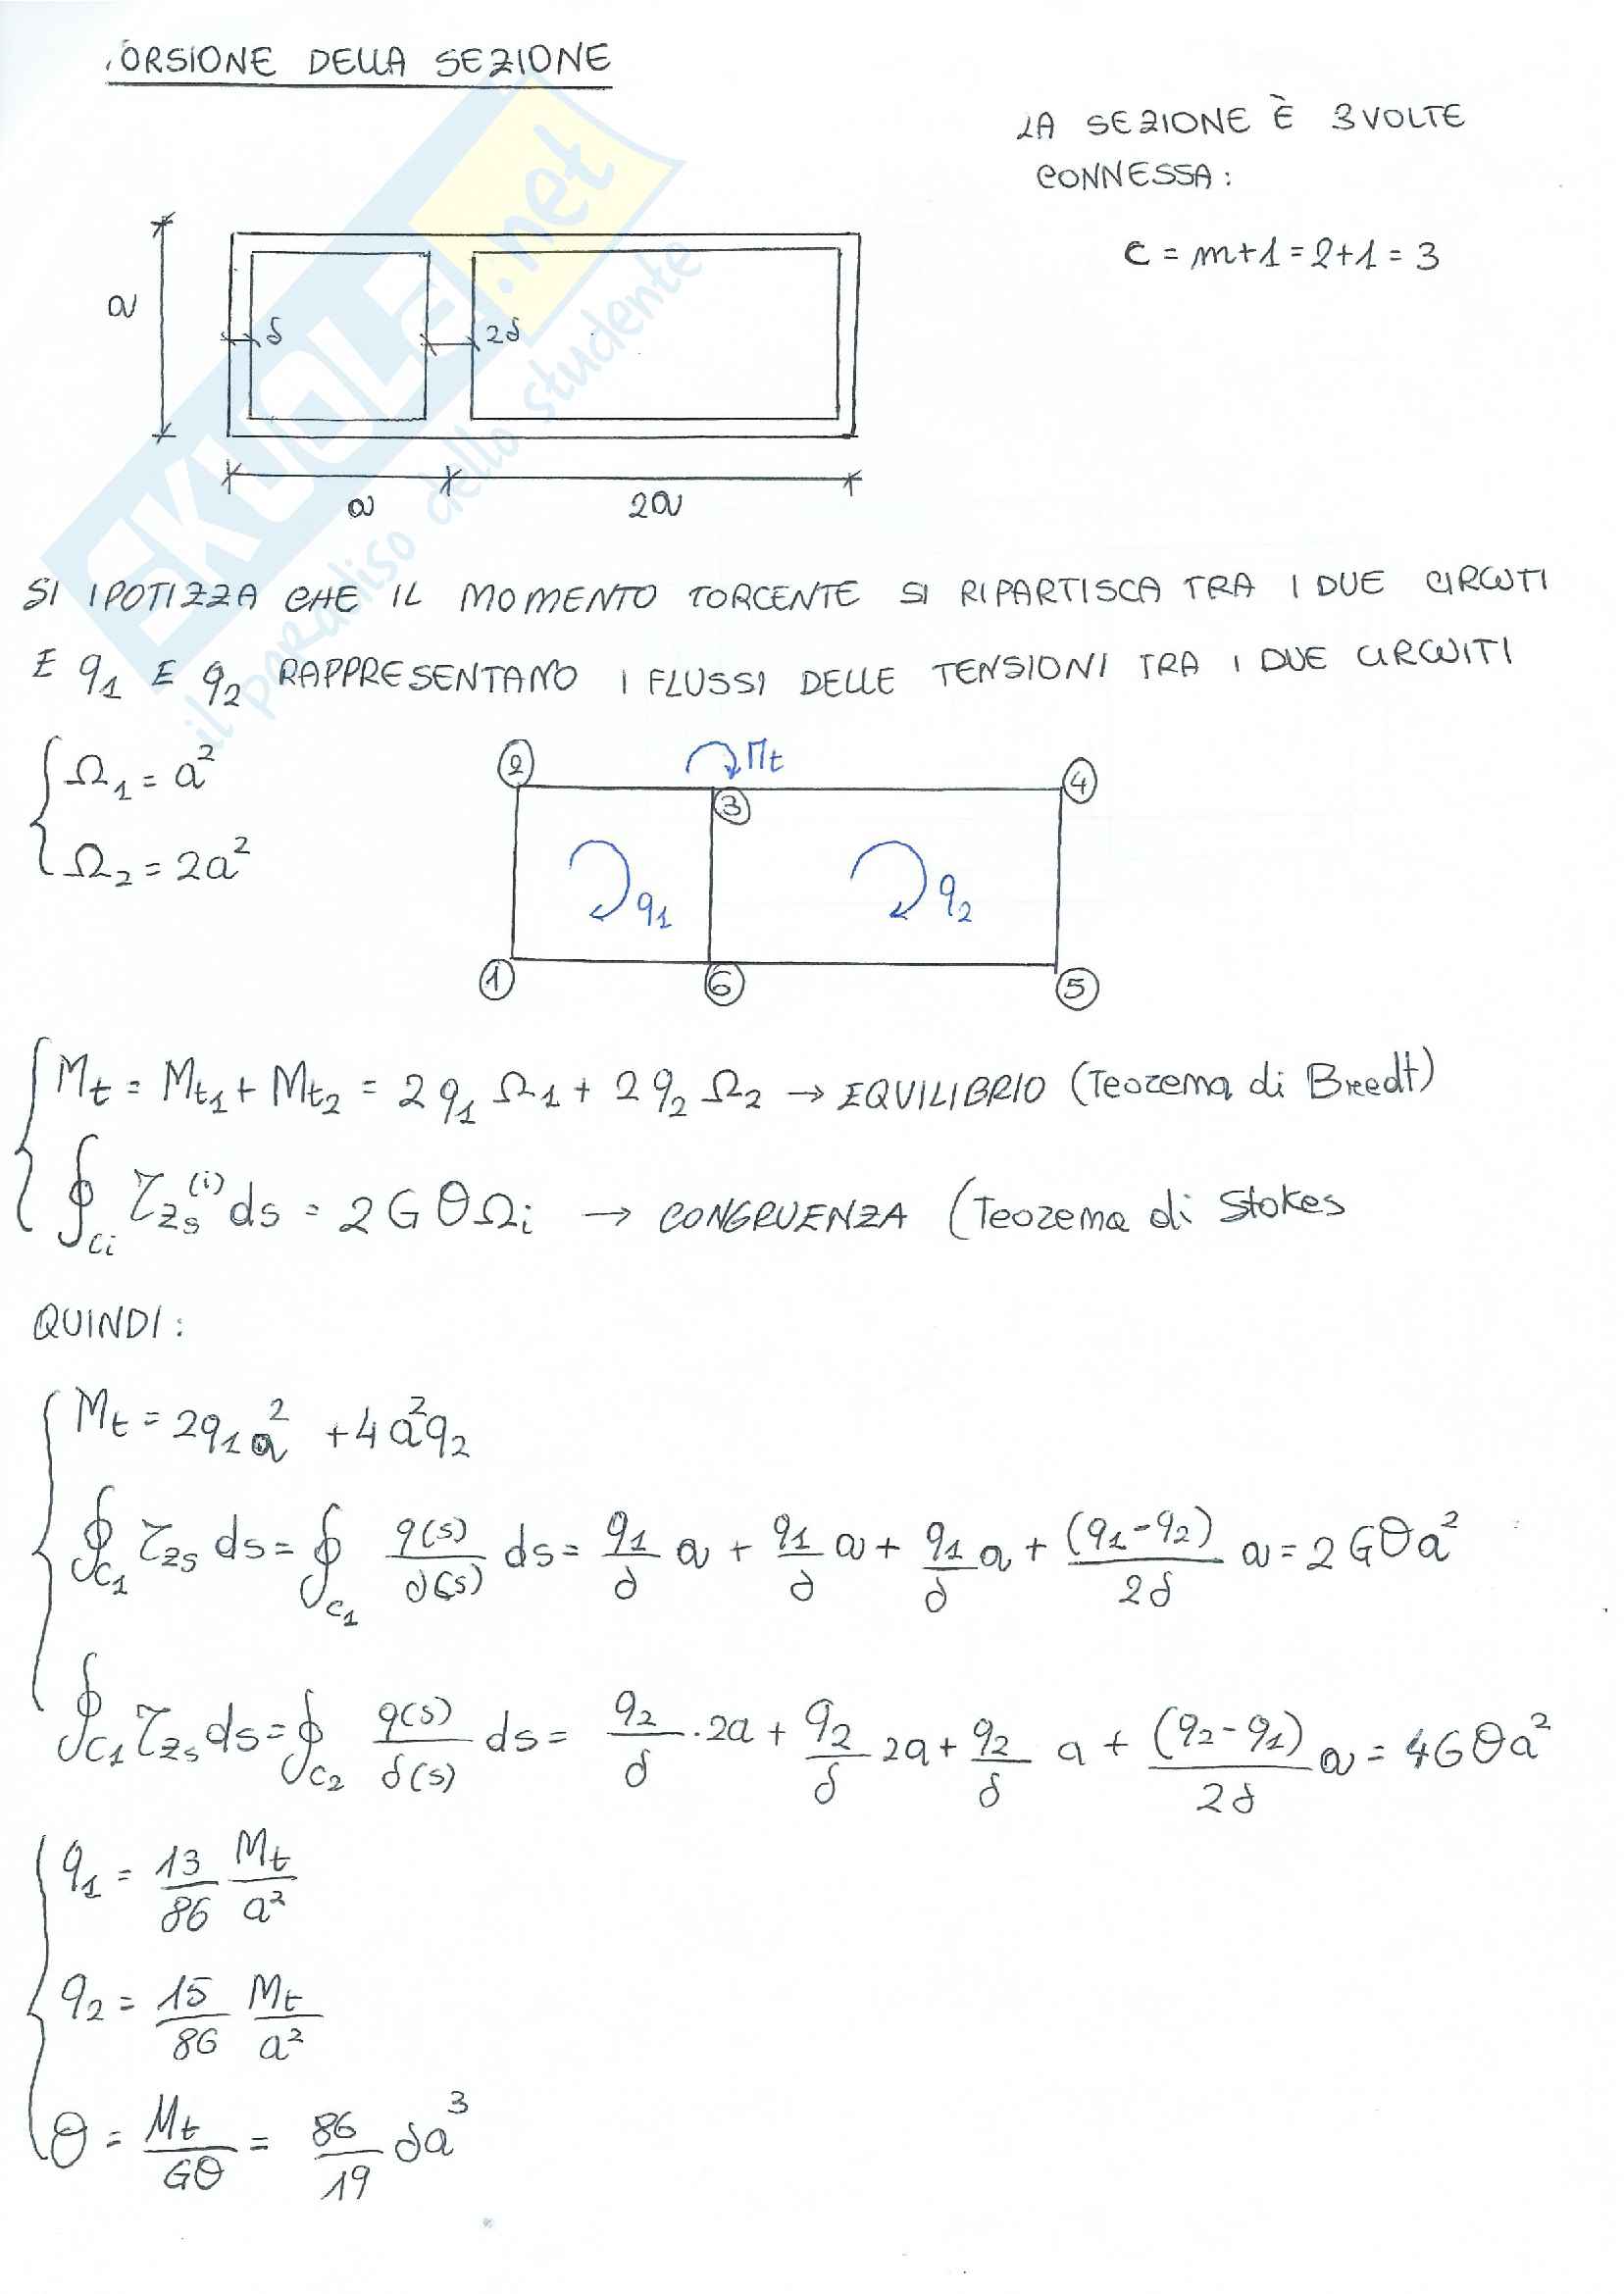 ORSIONE DELLA SEZIONE
LA SEZIONE È 3 VOLTE
CONNESSA:
C = m+1 = 2+1 = 3
a
δ
2δ
a
2a
SKUOLA.net
il paradiso dello studente
SI IPOTIZZA CHE IL MOMENTO TORCENTE SI RIPARTISCA TRA I DUE CIRCUTI
E q1 E q2 RAPPRESENTANO I FLUSSI DELLE TENSIONI TRA I DUE CIRCUITI
Ω1 = a²
Ω2 = 2a²
2
Mt
3
4
q1
q2
1
6
5
Mt = Mt1 + Mt2 = 2 q1 Ω1 + 2 q2 Ω2 → EQUILIBRIO (Teorema di Bredt)
∮ci τzs(i) ds = 2 G θ Ωi → CONGRUENZA (Teorema di Stokes
QUINDI:
Mt = 2q1a² + 4a²q2
∮c1 τzs ds = ∮c1 q(s)/δ(s) ds = q1/δ a + q1/δ a + q1/δ a + (q1-q2)/2δ a = 2Gθa²
∮c1 τzs ds = ∮c2 q(s)/δ(s) ds = q2/δ · 2a + q2/δ 2a + q2/δ a + (q2-q1)/2δ a = 4Gθa²
q1 = 13/86 Mt/a²
q2 = 15/86 Mt/a²
θ = Mt/Gθ = 86/19 δa³